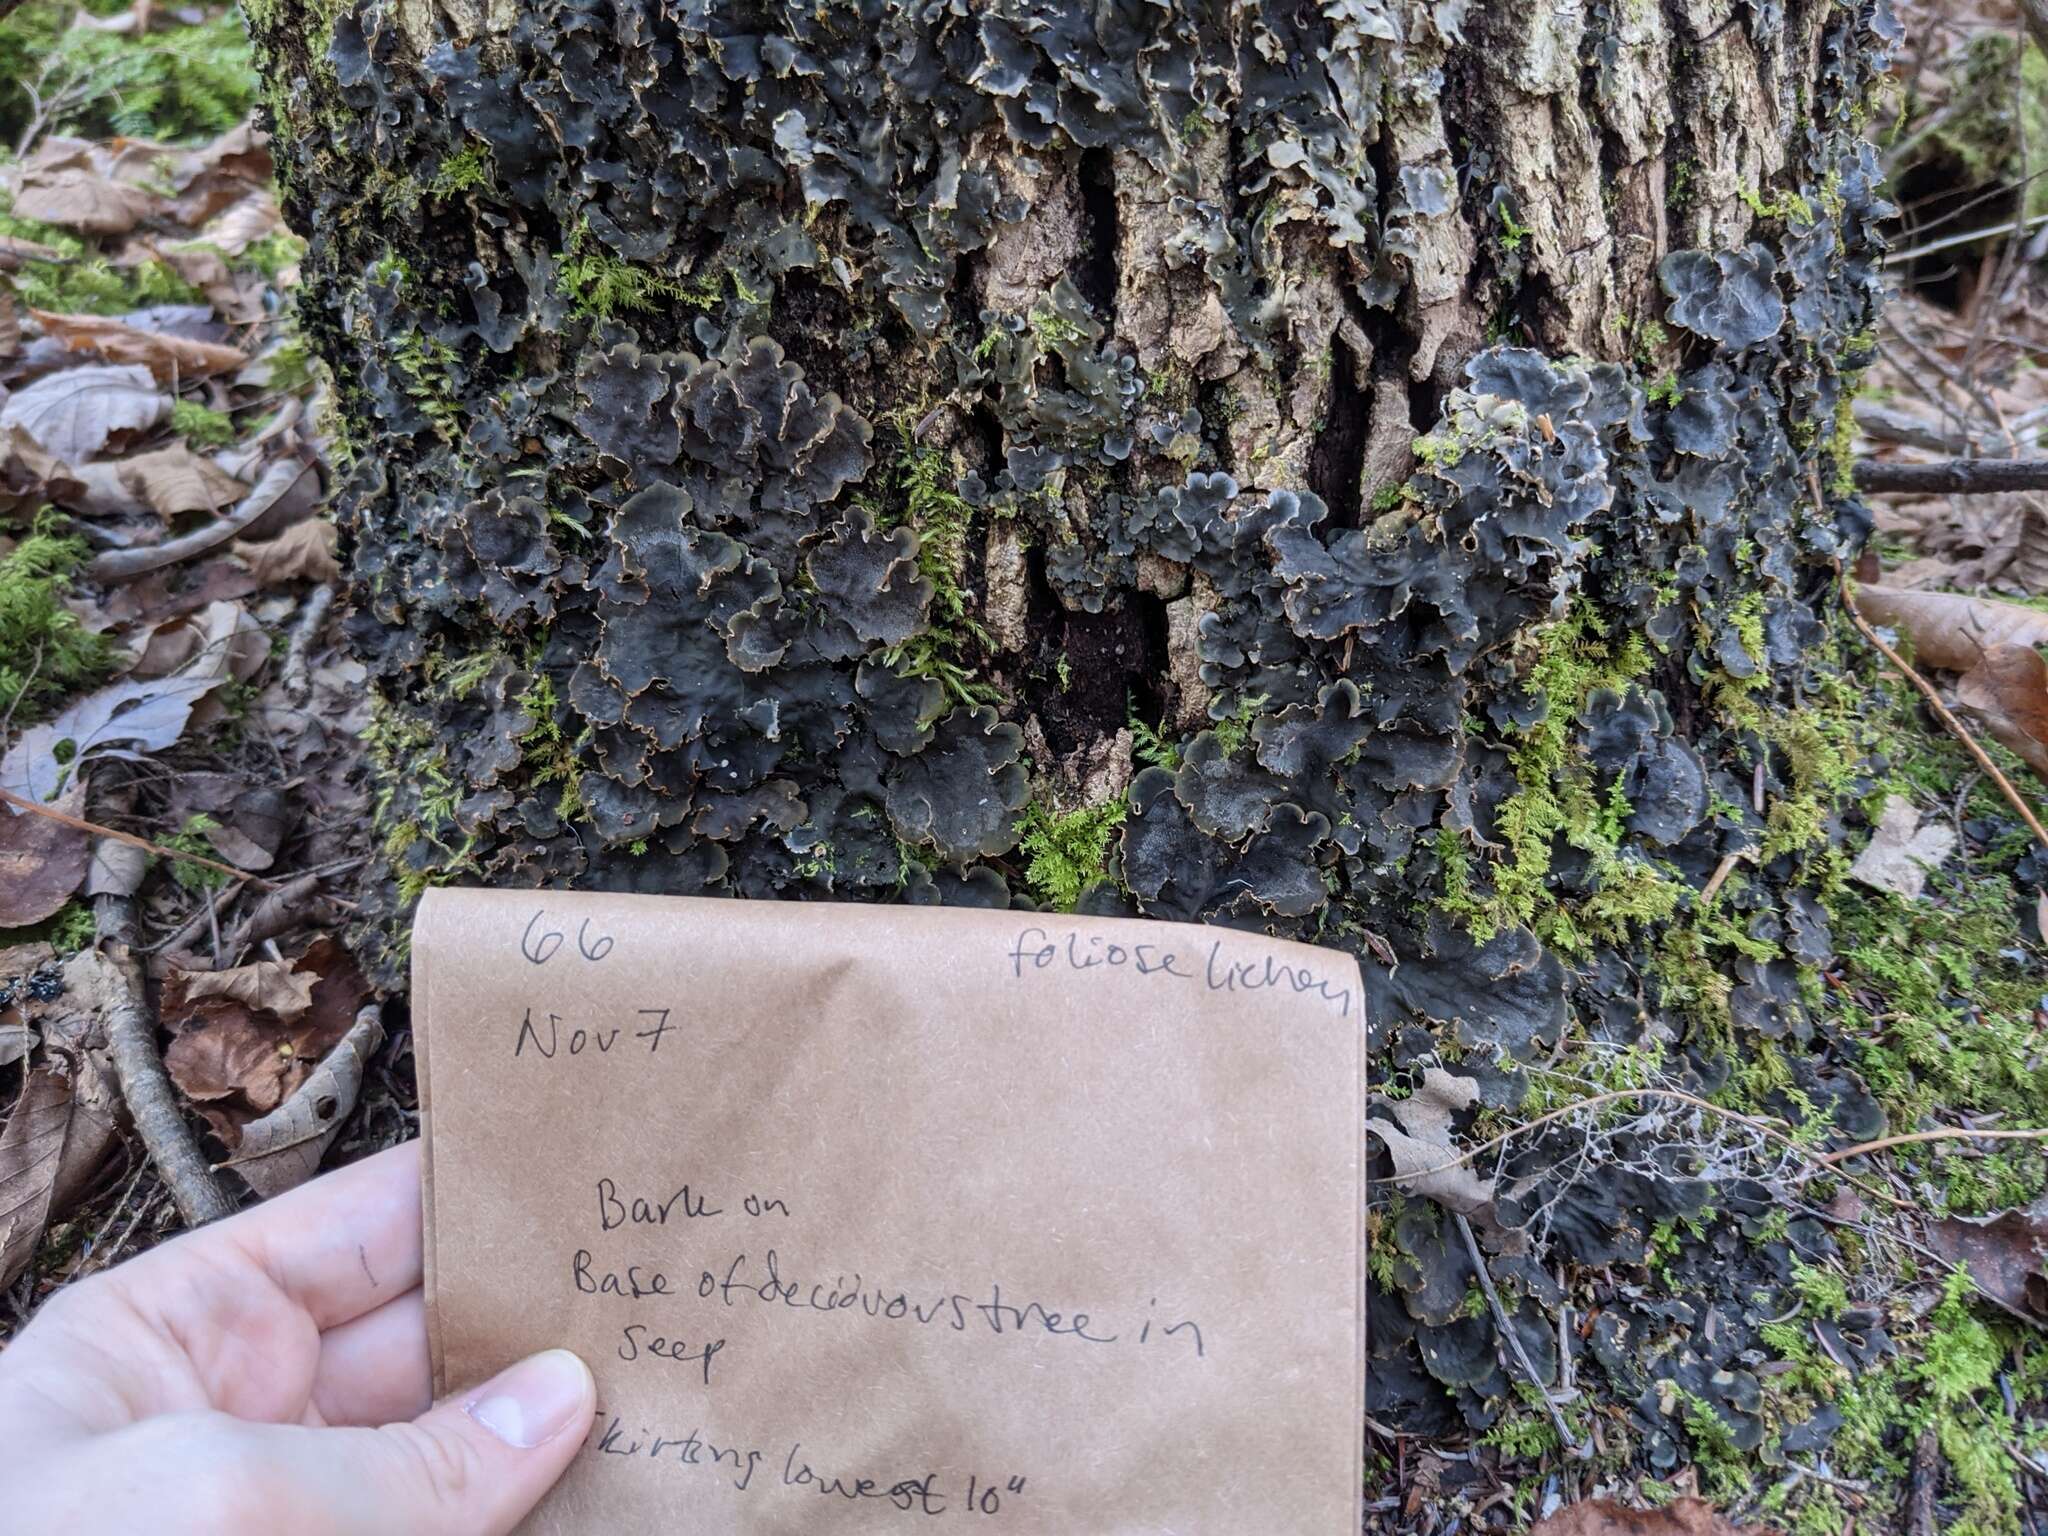 66 foliose lichen
Nov 7
Bark on
Base of deciduous tree in
seep
skirting lowest 10"